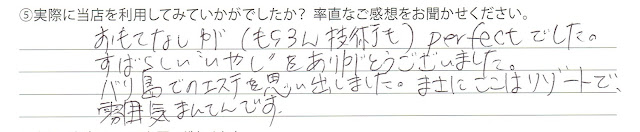 ⑤実際に当店を利用してみていかがでしたか？率直なご感想をお聞かせください。
おもてなしが（もちろん技術も）perfectでした。
すばらしい“いやし”をありがとうございました。
バリ島でのエステを思い出しました。まさにここはリゾートで、
雰囲気まんてんです。